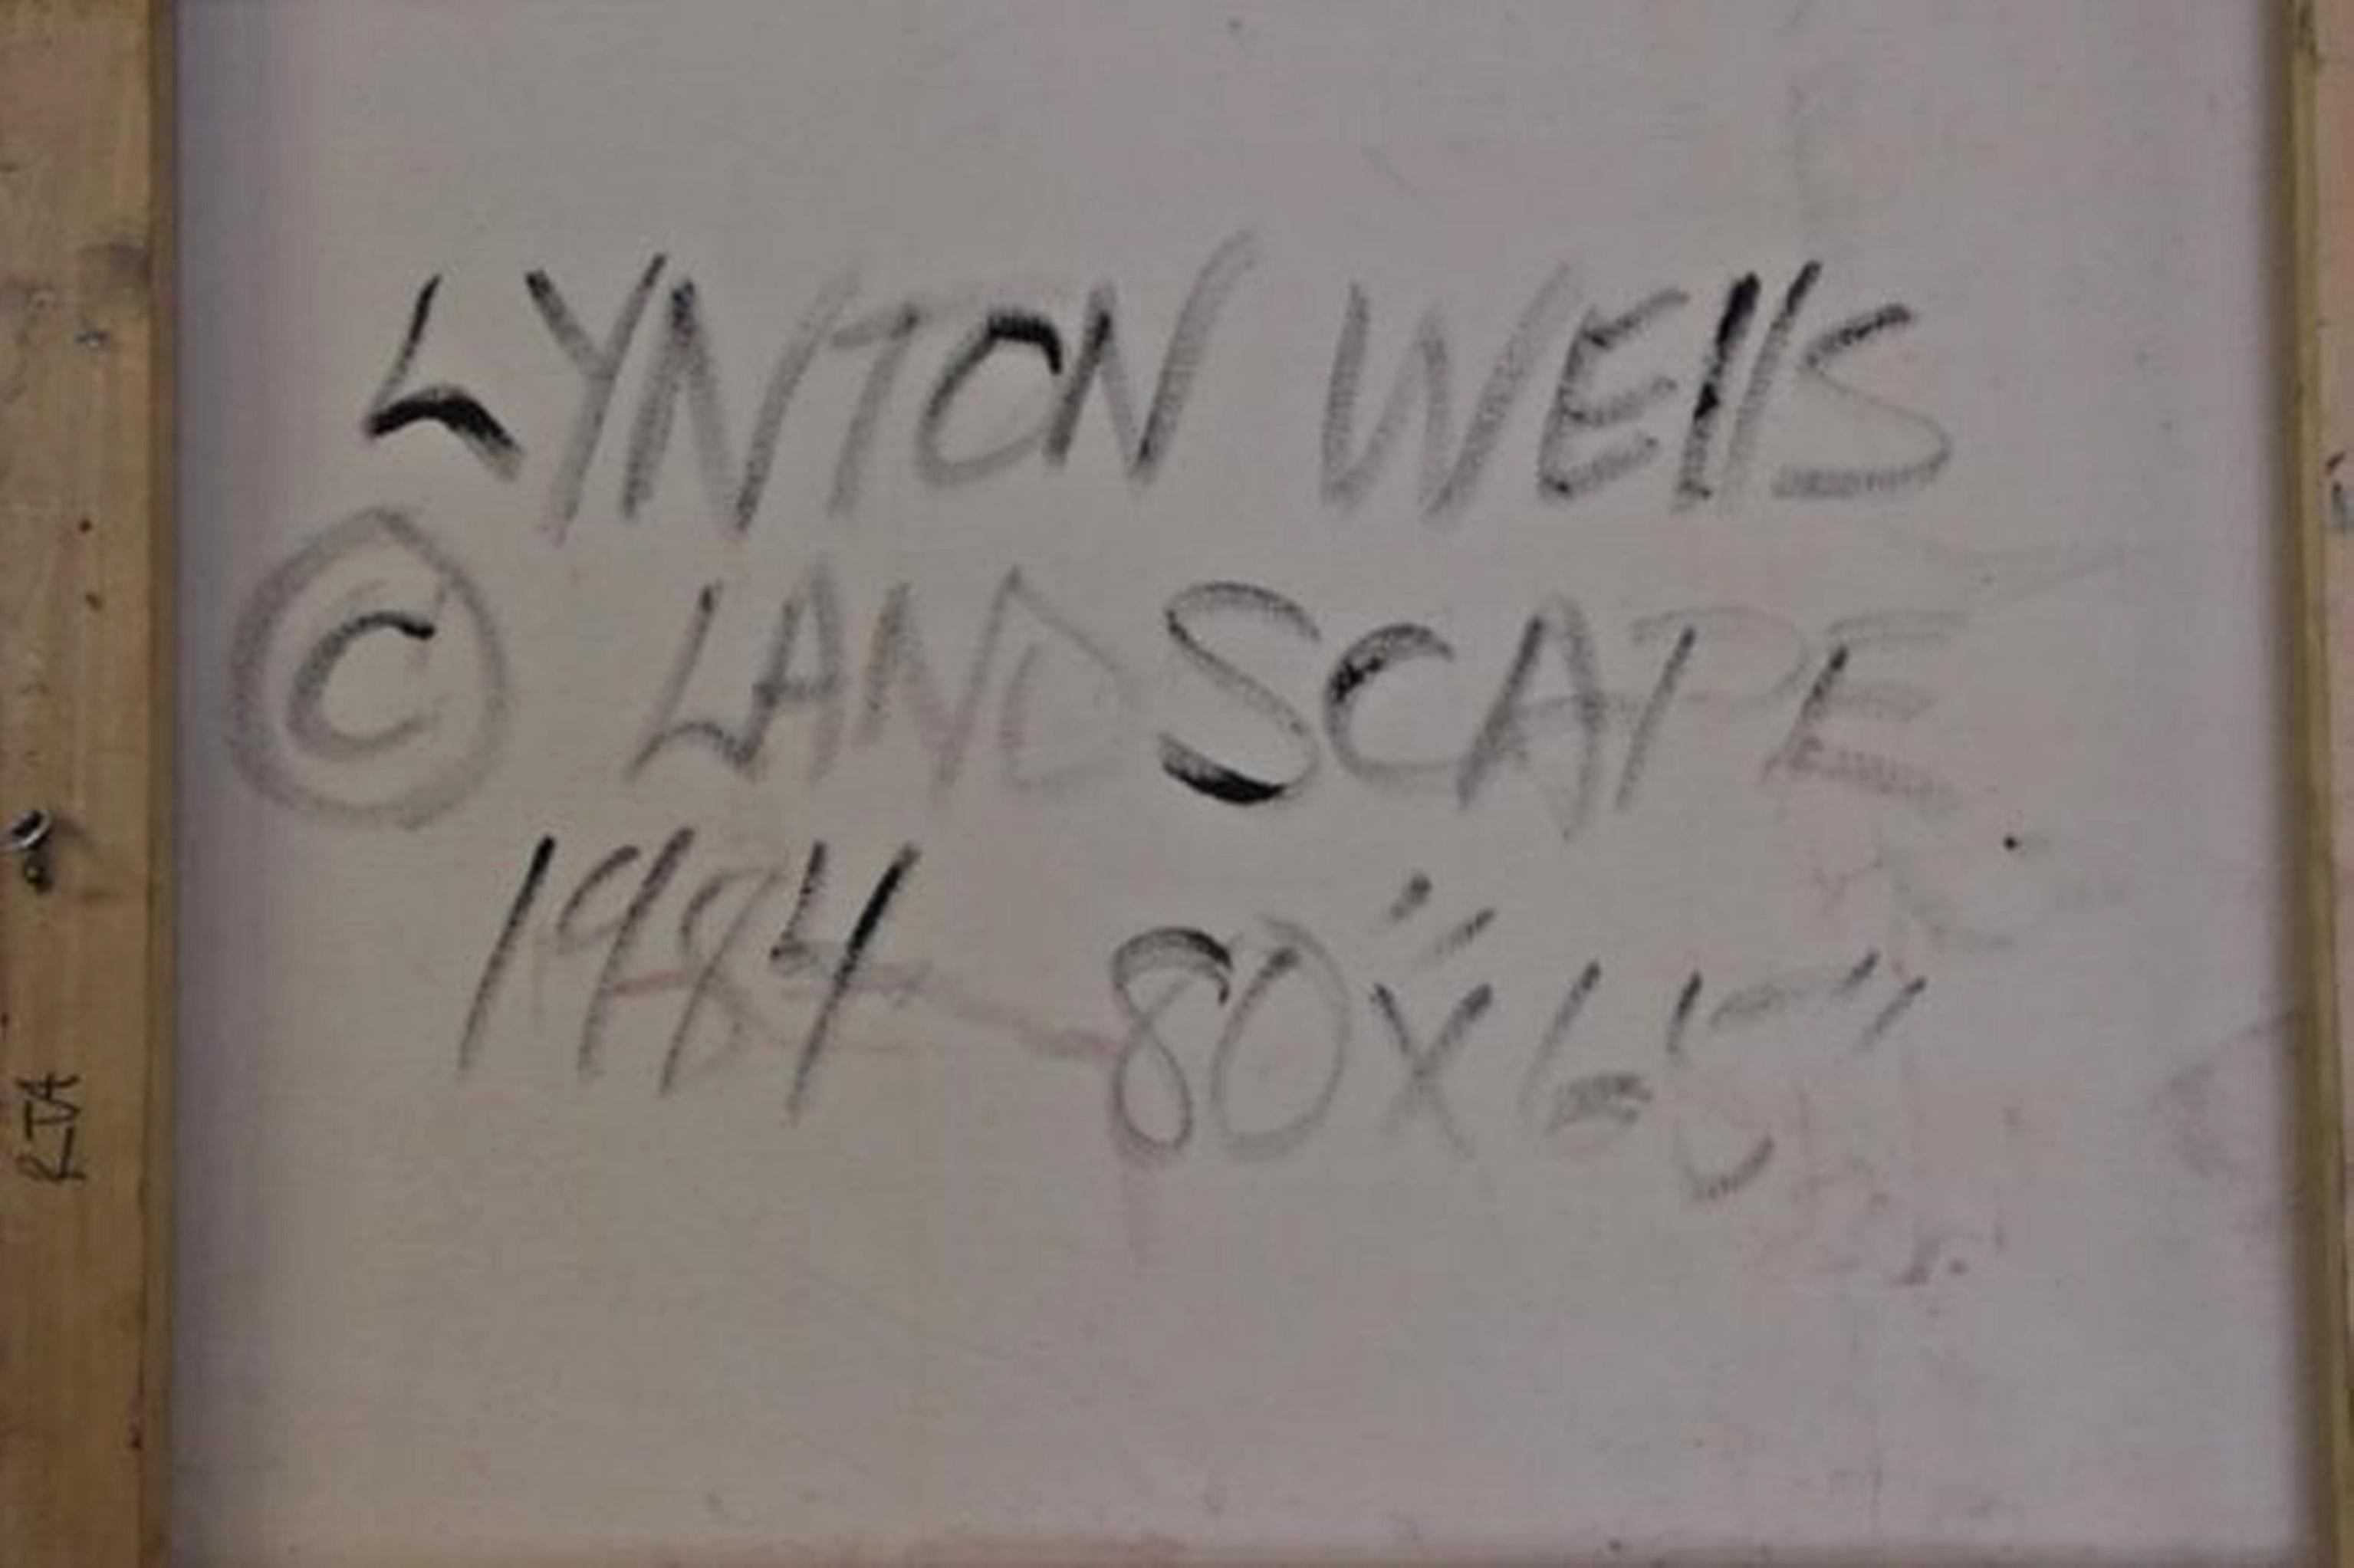 LYNTON WEllS
© LANDSCAPE
1984 80" X 65"
RTA